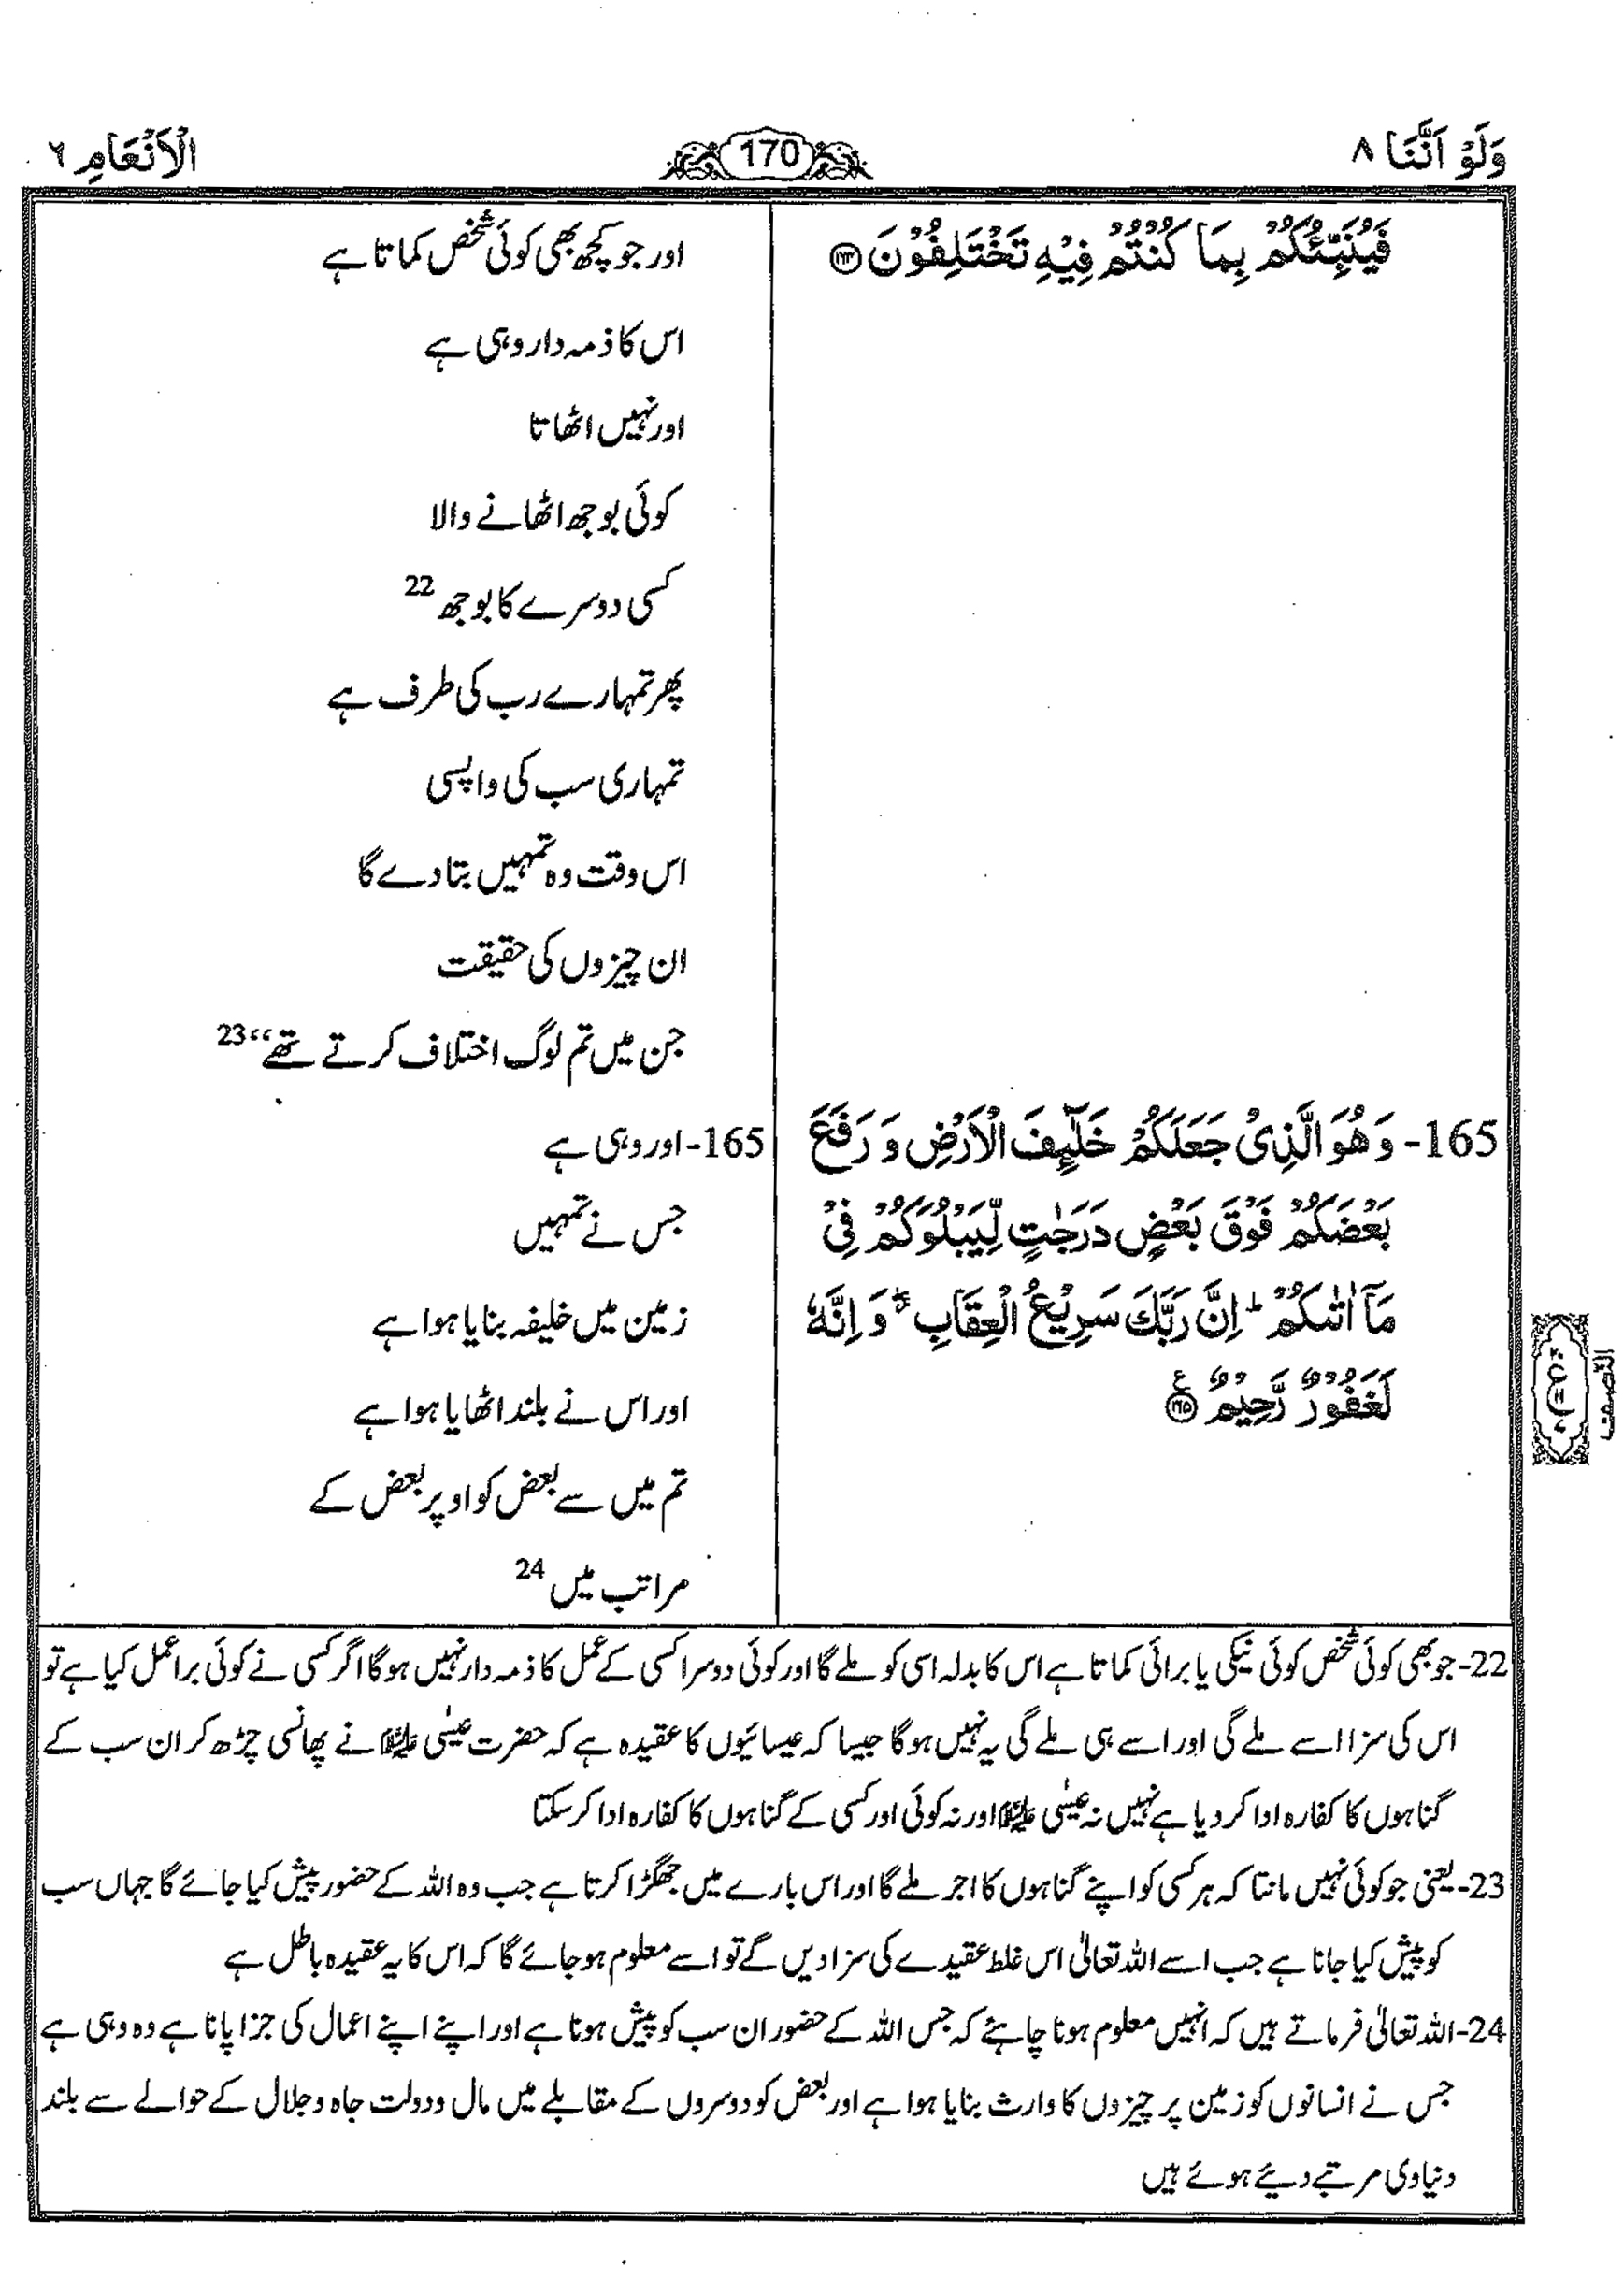 وَلَوْ اَنَّنَا ۸
170
الْاَنْعَامِ ٦
فَيُنَبِّئُكُمْ بِمَا كُنْتُمْ فِيْهِ تَخْتَلِفُوْنَ ۝۱۶۴
165- وَ هُوَ الَّذِيْ جَعَلَكُمْ خَلٰٓئِفَ الْاَرْضِ وَ رَفَعَ
بَعْضَكُمْ فَوْقَ بَعْضٍ دَرَجٰتٍ لِّيَبْلُوَكُمْ فِيْ
مَاۤ اٰتٰىكُمْ ؕ اِنَّ رَبَّكَ سَرِيْعُ الْعِقَابِ ۖ وَ اِنَّهٗ
لَغَفُوْرٌ رَّحِيْمٌ ۝۱۶۵
اور جو کچھ بھی کوئی شخص کماتا ہے
اس کا ذمہ دار وہی ہے
اور نہیں اٹھاتا
کوئی بوجھ اٹھانے والا
کسی دوسرے کا بوجھ 22
پھر تمہارے رب کی طرف ہے
تمہاری سب کی واپسی
اس وقت وہ تمہیں بتا دے گا
ان چیزوں کی حقیقت
جن میں تم لوگ اختلاف کرتے تھے‘‘ 23
165- اور وہی ہے
جس نے تمہیں
زمین میں خلیفہ بنایا ہوا ہے
اور اس نے بلند اٹھایا ہوا ہے
تم میں سے بعض کو اوپر بعض کے
مراتب میں 24
النصف
22- جو بھی کوئی شخص کوئی نیکی یا برائی کماتا ہے اس کا بدلہ اسی کو ملے گا اور کوئی دوسرا کسی کے عمل کا ذمہ دار نہیں ہوگا اگر کسی نے کوئی برا عمل کیا ہے تو
اس کی سزا اسے ملے گی اور اسے ہی ملے گی یہ نہیں ہوگا جیسا کہ عیسائیوں کا عقیدہ ہے کہ حضرت عیسٰی علیہ السلام نے پھانسی چڑھ کر ان سب کے
گناہوں کا کفارہ ادا کر دیا ہے نہیں نہ عیسٰی علیہ السلام اور نہ کوئی اور کسی کے گناہوں کا کفارہ ادا کر سکتا
23- یعنی جو کوئی نہیں مانتا کہ ہر کسی کو اپنے گناہوں کا اجر ملے گا اور اس بارے میں جھگڑا کرتا ہے جب وہ اللہ کے حضور پیش کیا جائے گا جہاں سب
کو پیش کیا جانا ہے جب اسے اللہ تعالٰی اس غلط عقیدے کی سزا دیں گے تو اسے معلوم ہو جائے گا کہ اس کا یہ عقیدہ باطل ہے
24- اللہ تعالٰی فرماتے ہیں کہ انہیں معلوم ہونا چاہئے کہ جس اللہ کے حضور ان سب کو پیش ہونا ہے اور اپنے اپنے اعمال کی جزا پانا ہے وہ وہی ہے
جس نے انسانوں کو زمین پر چیزوں کا وارث بنایا ہوا ہے اور بعض کو دوسروں کے مقابلے میں مال ودولت جاہ وجلال کے حوالے سے بلند
دنیاوی مرتبے دیئے ہوئے ہیں